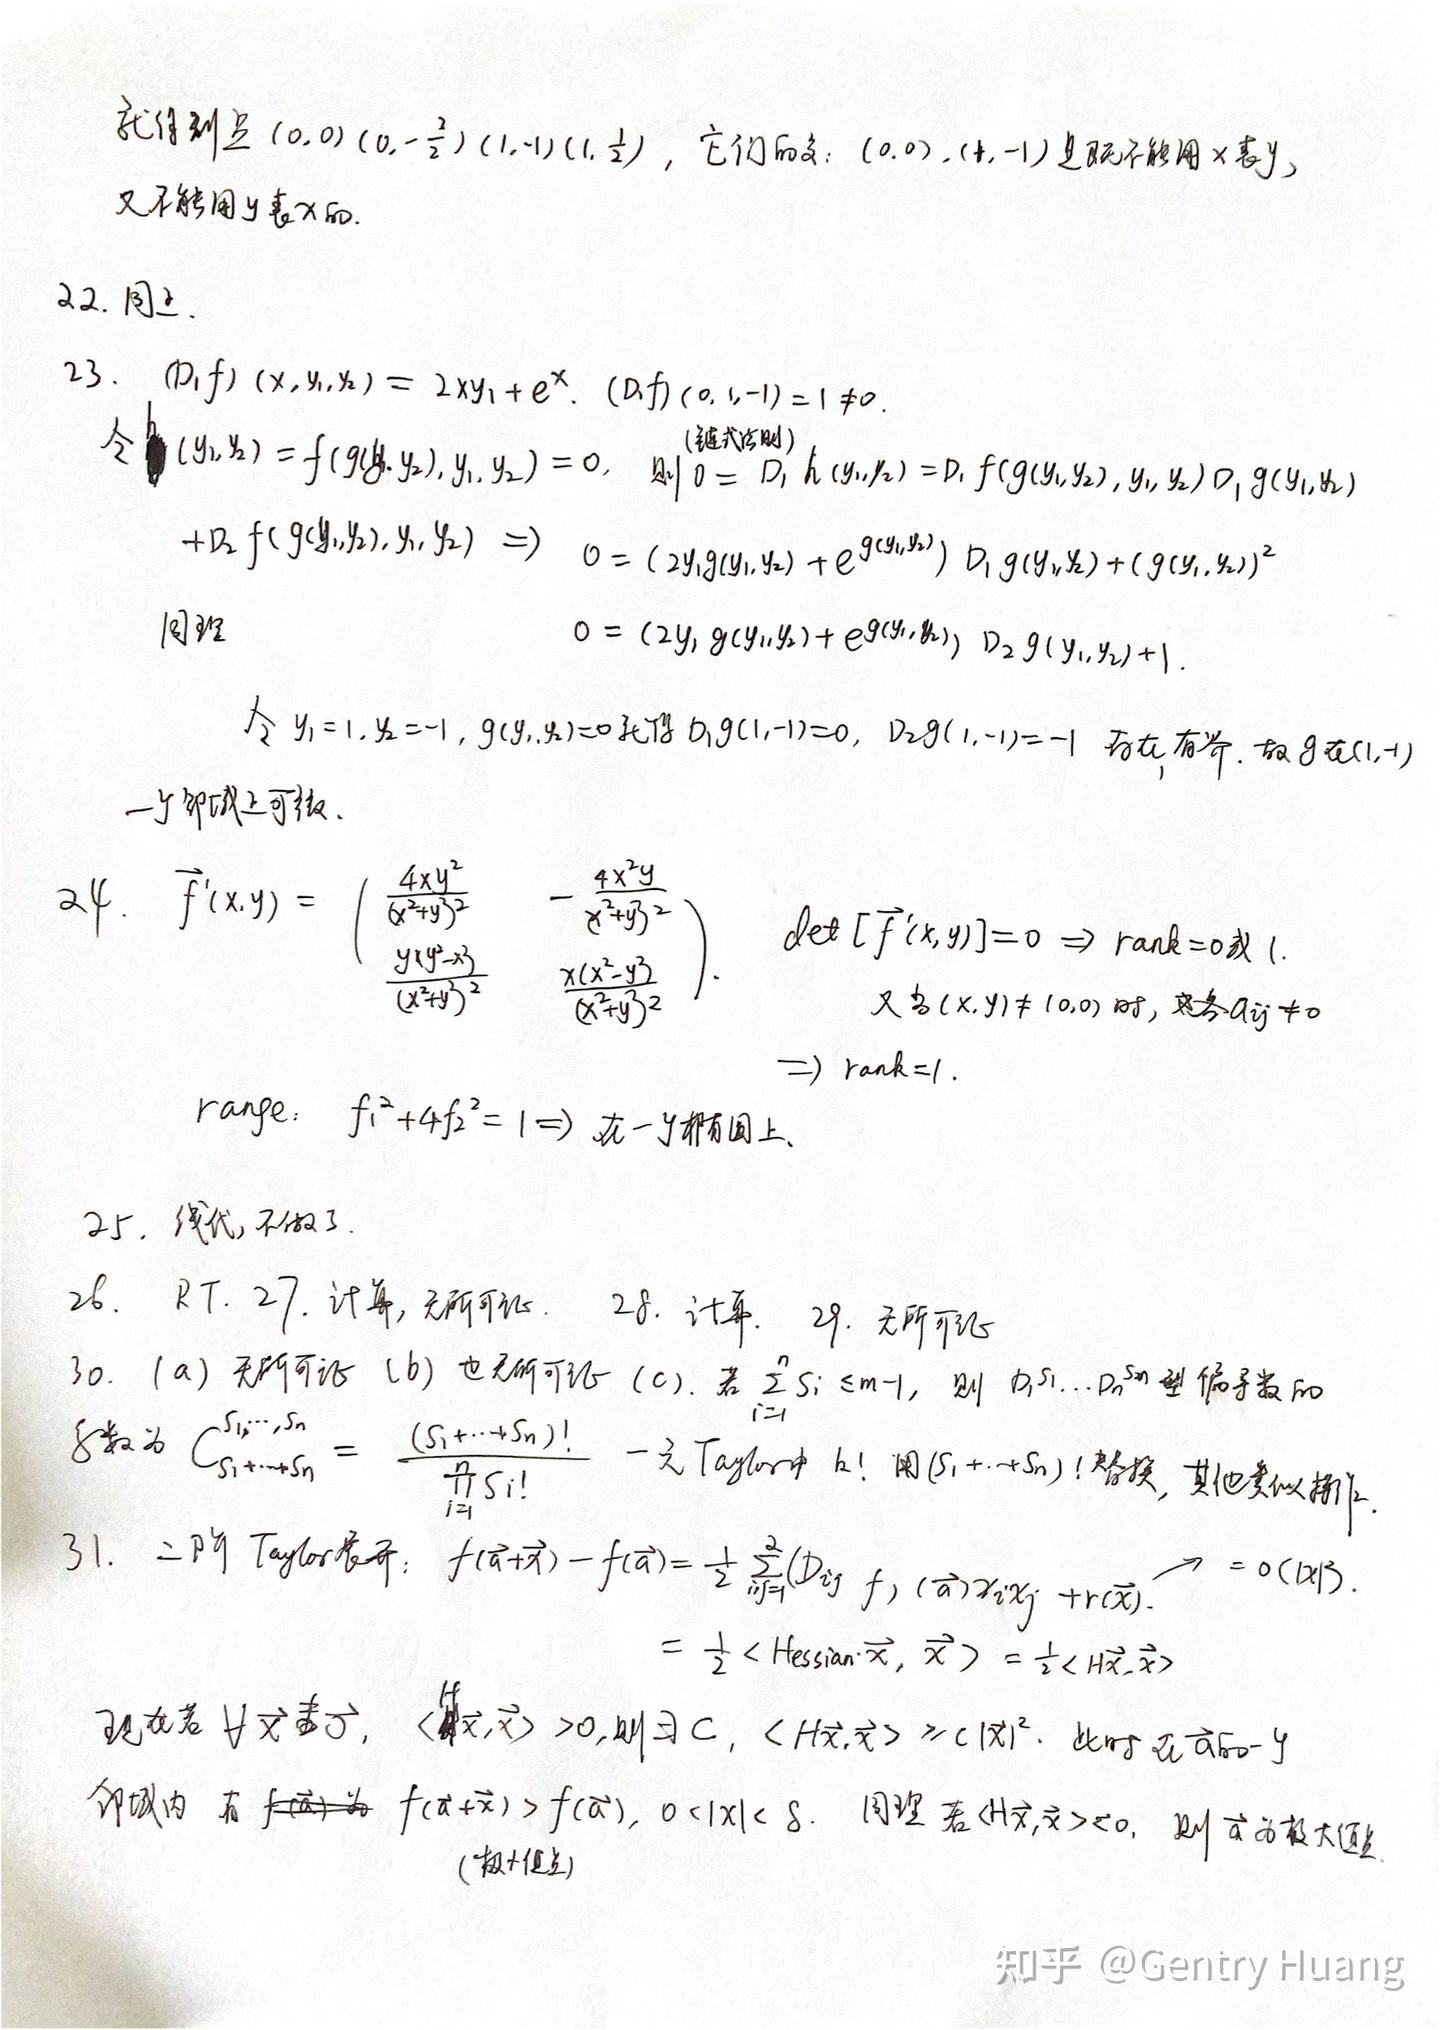 就得到点 (0,0) (0,-3/2) (1,-1) (1,1/2), 它们的交: (0,0), (1,-1) 是既不能用 x 表 y,
又不能用 y 表 x 的.
22. 同上.
23. (D₁f) (x,y₁,y₂) = 2xy₁+eˣ. (D₁f) (0,1,-1) = 1 ≠ 0.
(链式法则)
令 h (y₁,y₂) = f(g(y₁,y₂), y₁, y₂) = 0, 则 0 = D₁ h(y₁,y₂) = D₁ f(g(y₁,y₂), y₁, y₂) D₁ g(y₁,y₂)
+D₂ f(g(y₁,y₂), y₁, y₂) ⇒ 0 = (2y₁g(y₁,y₂) + e^{g(y₁,y₂)}) D₁g(y₁,y₂) + (g(y₁,y₂))²
同理 0 = (2y₁ g(y₁,y₂) + e^{g(y₁,y₂)}) D₂ g(y₁,y₂)+1.
令 y₁=1, y₂=-1, g(y₁,y₂)=0 就得 D₁g(1,-1)=0, D₂g(1,-1)=-1 存在,有界. 故 g 在(1,-1)
一个邻域上可微.
24. f⃗'(x,y) = ( 4xy²/(x²+y²)² - 4x²y/(x²+y²)²
y(y²-x²)/(x²+y²)² x(x²-y²)/(x²+y²)² ).
det [f⃗'(x,y)]=0 ⇒ rank=0或1.
又当 (x,y)≠(0,0) 时, aᵢⱼ≠0
⇒ rank=1.
range: f₁²+4f₂²=1 ⇒ 在一个椭圆上.
25. 线代,不做了.
26. RT. 27. 计算,无所可证. 28. 计算. 29. 无所可证
30. (a) 无所可证 (b) 也无所可证 (c). 若 ∑_{i=1}^{n} Sᵢ ≤ m-1, 则 D₁^{S₁}...Dₙ^{Sₙ} 型偏导数的
系数为 C_{S₁+...+Sₙ}^{S₁,...,Sₙ} = (S₁+...+Sₙ)! / ∏_{i=1}^{n} Sᵢ! 一元 Taylor中 k! 用(S₁+...+Sₙ)! 替换, 其他类似操作.
31. 二阶 Taylor展开: f(a⃗+x⃗) - f(a⃗) = ½ ∑_{i,j=1}^{2} (Dᵢⱼ f) (a⃗) xᵢxⱼ + r(x⃗). → = o(|x|²).
= ½ < Hessian·x⃗, x⃗ > = ½ < Hx⃗, x⃗ >
现在若 ∀ x⃗ ≠ 0⃗, <Hx⃗,x⃗> >0, 则 ∃ C, <Hx⃗,x⃗> ≥ C|x⃗|². 此时在 a⃗ 的一个
邻域内 有 f(a⃗+x⃗) > f(a⃗), 0<|x|<δ. 同理若 <Hx⃗,x⃗> <0, 则 a⃗ 为极大值点.
(极小值点)
知乎 @Gentry Huang